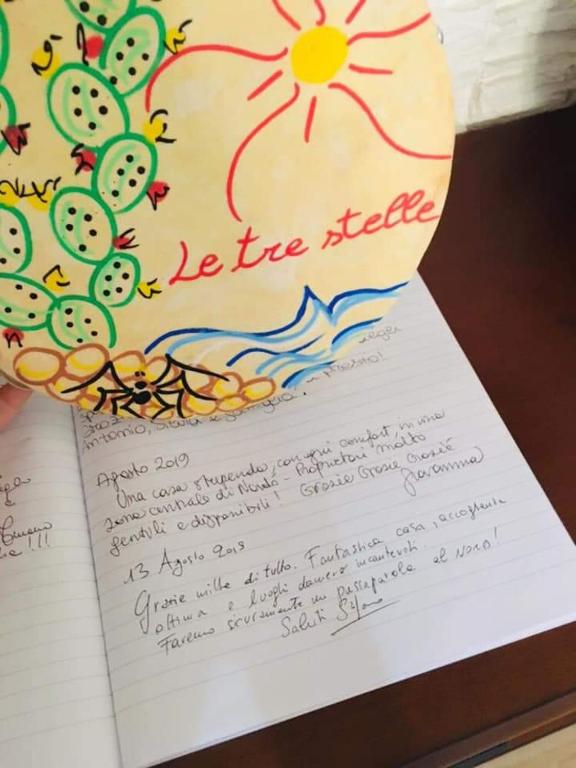 Le tre stelle
presto!
Agosto 2019
Una casa stupenda, con ogni comfort, in una
zona centrale di Nardò - Proprietari molto
gentili e disponibili! Grazie Grazie Grazie
Giovanna
13 Agosto 2019
Grazie mille di tutto. Fantastica casa, accoglienza
ottima e luoghi davvero incantevoli.
Faremo sicuramente un passaparola al Nord!
Saluti